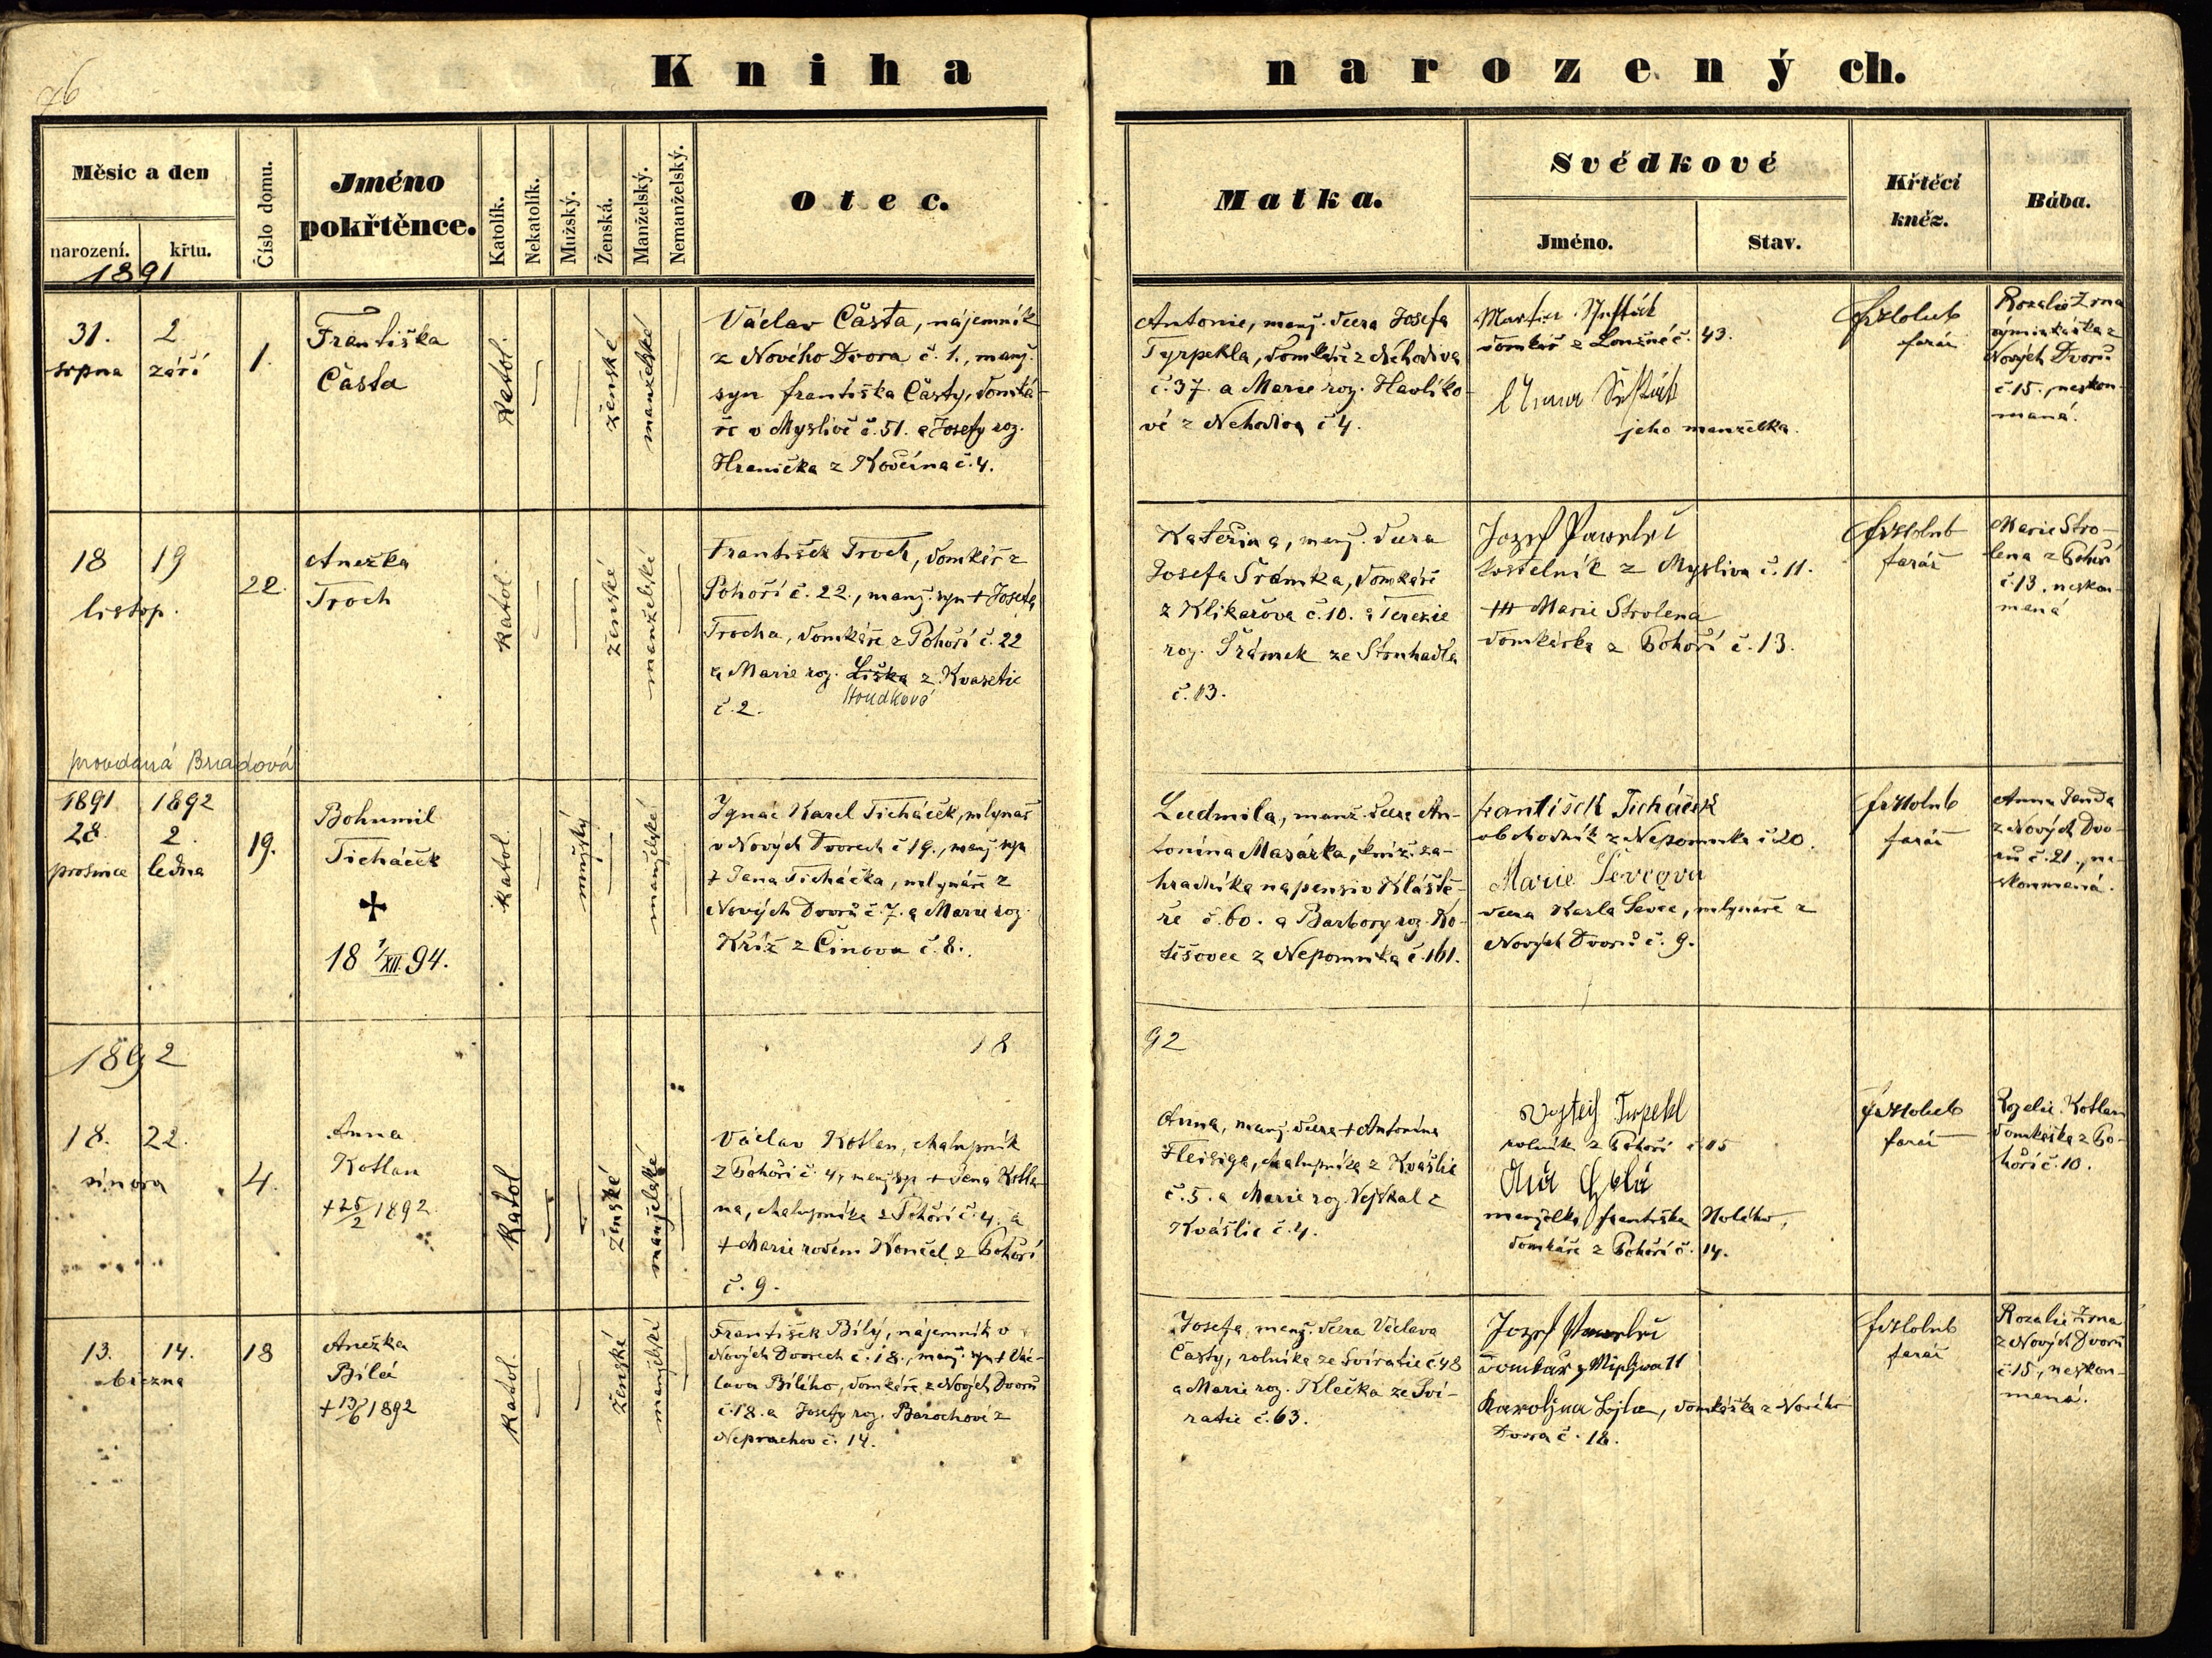 76
Kniha narozených.
Měsíc a den
narození.
křtu.
1891
Číslo domu.
Jméno
pokřtěnce.
Katolík.
Nekatolík.
Mužský.
Ženská.
Manželský.
Nemanželský.
Otec.
Matka.
Svědkové
Jméno.
Stav.
Křtěcí
kněz.
Bába.
31. 2.
srpna září
1.
Františka
Částa
katol.
ženské
manželské
Václav Částa, nájemník
z Nového Dvora č. 1., manž.
syn Františka Částy, domká-
ře v Myslivě č. 51. a Josefy roz.
Hranička z Kovčína č. 4.
Antonie, manž. dcera Josefa
Tyrpekla, domkáře z Nehodiva
č. 37. a Marie roz. Havlíko-
vé z Nehodiva č 4.
Martin
domkář z č. 43.
jeho manželka.
farář
Rozalie Zrna
z
Nových Dvorů
č 15., neskou-
maná.
18 19
listop.
22.
Anežka
Troch
katol.
ženské
manželské
František Troch, domkář z
Pohoří č. 22., manž. syn + Josefa
Trocha, domkáře z Pohoří č. 22
a Marie roz. Liška z Kvasetic
Houdková
č. 2.
Kateřina, manž. dcera
Josefa Šrámka, domkáře
z Klikařova č. 10. a Terezie
roz. Šrámek ze Struhadla
č. 13.
Jozef
kostelník z Mysliva č. 11.
+++ Marie Strolena
domkářka z Pohoří č. 13.
farář
Marie Stro-
lena z Pohoří
č 13, neskou-
maná
provdaná Bradová
1891 1892
28. 2.
prosince ledna
19.
Bohumil
Ticháček
+
18 1/XII. 94.
katol.
mužský
manželské
Ignác Karel Ticháček, mlynář
v Nových Dvorech č 19., manž. syn
+ Jana Ticháčka, mlynáře z
Nových Dvorů č. 7. a Marie roz.
Kříž z Činova č. 8.
Ludmila, manž. dcera An-
tonína Masárka, kníž. za-
hradníka na pensi v Klášte-
ře č. 60. a Barbory roz. Ko-
tišovce z Nepomuka č. 161.
František Ticháček
obchodník z Nepomuka č 20.
Marie Ševcova
dcera Karla Ševce, mlynáře z
Nových Dvorů č. 9.
farář
Anna Janda
z Nových Dvo-
rů č. 21., ne-
skoumaná.
1892
18 92
18. 22.
února
4.
Anna
Kotlan
+ 25/2 1892
katol
ženské
manželské
Václav Kotlan, chalupník
z Pohoří č. 4, manž. syn + Jana Kotla-
na, chalupníka z Pohoří č. 4. a
+ Marie rodem Končel z Pohoří
č. 9.
Anna, manž. dcera + Antonína
Fleisiga, chalupníka z Kvášlic
č. 5. a Marie roz. Vejskal z
Kvášlic č. 4.
rolník z Pohoří č 15
manželka Františka
domkáře z Pohoří č. 14.
farář
Rozalie Kotlan
domkářka z Po-
hoří č. 10.
13. 14.
března
18
Anežka
Bílá
+ 13/6 1892
katol.
ženské
manželské
František Bílý, nájemník v
Nových Dvorech č. 18., manž. syn + Vác-
lava Bílého, domkáře z Nových Dvorů
č. 18. a Josefy roz. Barochové z
Neprachov č. 14.
Josefa, manž. dcera Václava
Částy, rolníka ze Svíratic č 48
a Marie roz. Klečka ze Sví-
ratic č. 63.
Jozef
domkář z 11
Karolina , domkářka z Nového
Dvora č. 18.
farář
Rozalie Zrna
z Nových Dvorů
č 15, neskou-
maná.